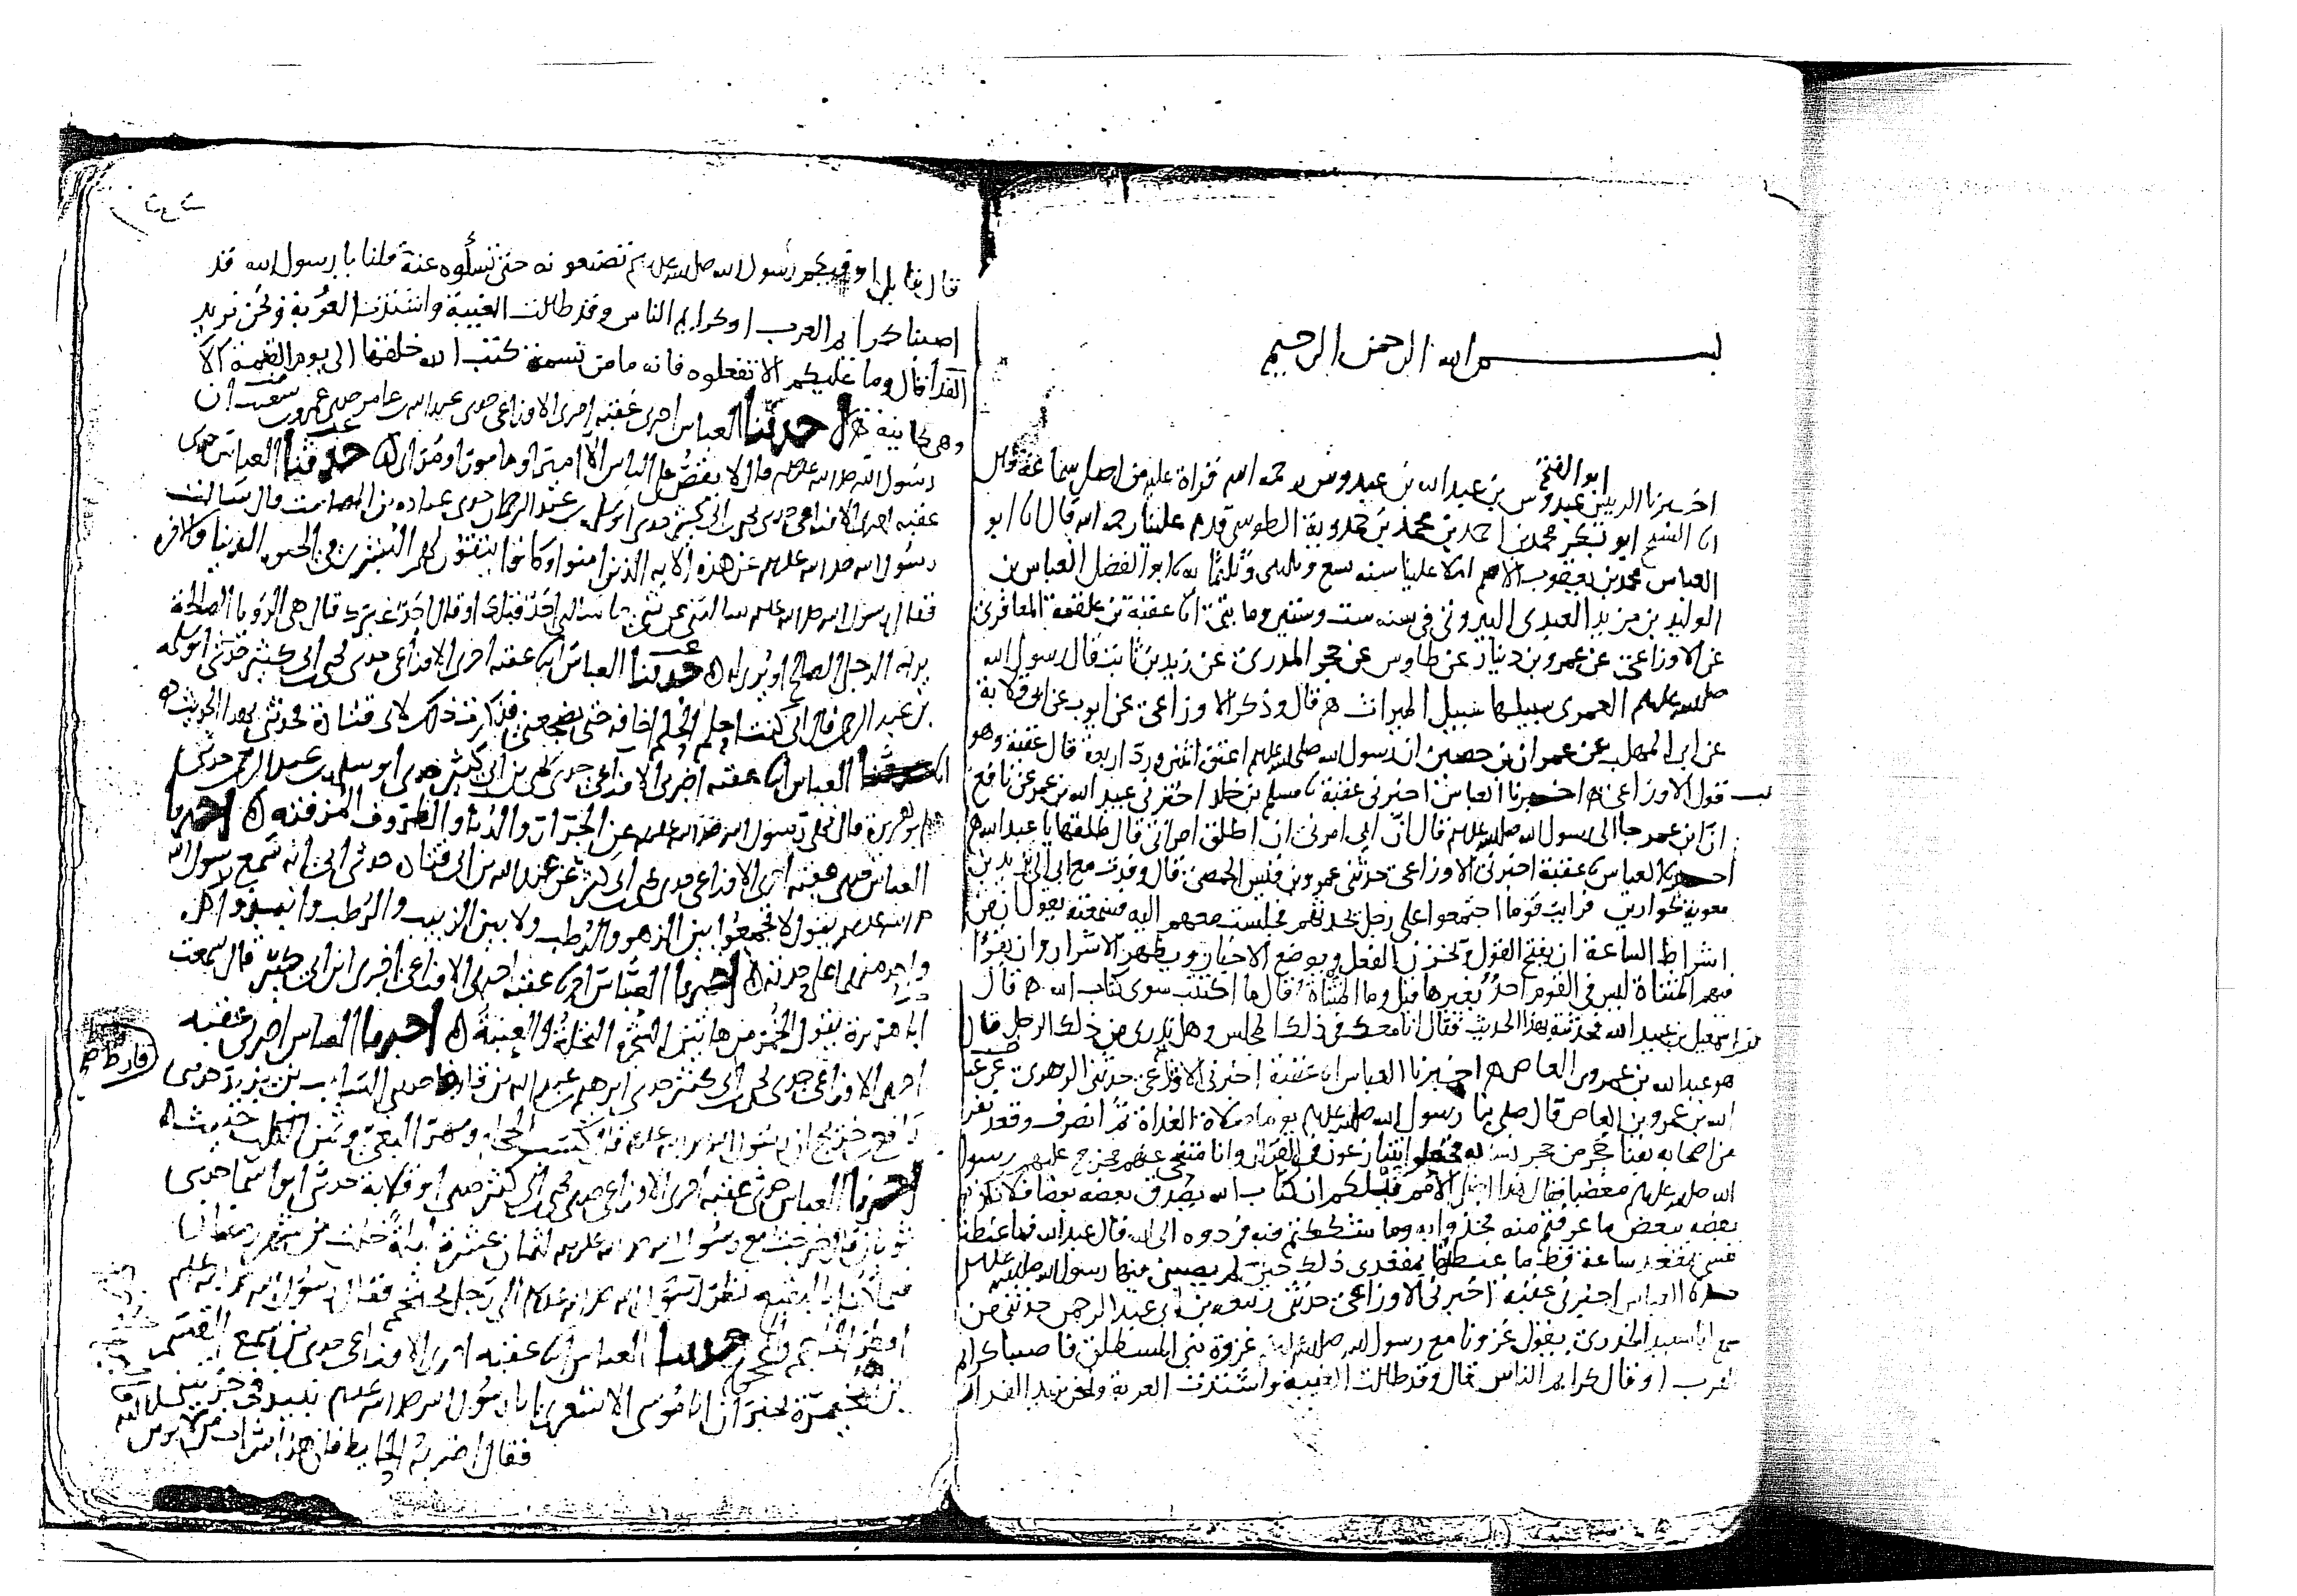 بسم الله الرحمن الرحيم
ابو الفتح
اخبرنا الرييس عبدوس بن عبد الله بن عبدوس رحمه الله قراة عليه من اصل سماعه
انا الشيخ ابو بكر محمد بن احمد بن محمد بن حمدوية الطوسي قدم علينا رحمه الله قال انا ابو
العباس محمد بن يعقوب الاصم املا علينا سنه سبع وثلثين وثلثماية نا ابو الفضل العباس بن
الوليد بن مزيد العبدي البيروتي في سنه ست وستين ومايتين انا عقبة بن علقمة المعافري
عن الاوزاعي عن عمرو بن دينار عن طاوس عن حجر المدري عن زيد بن ثابت قال رسول الله
صلى الله عليه وسلم العمرى سبيلها سبيل الميراث ه قال وذكر الاوزاعي عن ايوب عن ابي قلابة
عن ابي المهلب عن عمران بن حصين ان رسول الله صلى الله عليه وسلم اعتق اثنين ورد اربعة قال عقبة وهو
قول الاوزاعي ه اخبرنا العباس اخبرني عقبة نا مسلم بن خلد اخبرني عبيد الله بن عمر عن نافع
ان ابن عمر جا الى رسول الله صلى الله عليه وسلم قال ان ابي امرني ان اطلق امراتي قال طلقها يا عبد الله ه
اخبرنا العباس نا عقبة اخبرني الاوزاعي حدثني عمرو بن قيس الحمصي قال وفدت مع ابي الى يزيد بن
معوية بحوارين فرايت قوما اجتمعوا على رجل يحدثهم فجلست معهم اليه فسمعته يقول ان من
اشراط الساعة ان يفتح القول ويخزن الفعل ويوضع الاخيار ويظهر الاشرار وان يقرا
فيهم المثناة ليس في القوم احد يغيرها قيل وما المثناة قال ما اكتتب سوى كتاب الله ه قال
اسمعيل بن عبيد الله فحدثته بهذا الحديث فقال انا معك في ذلك المجلس وهل تدري من ذلك الرجل قال
هو عبد الله بن عمرو بن العاص ه اخبرنا العباس انا عقبة اخبرني الاوزاعي حدثني الزهري عن عبد
الله بن عمرو بن العاص قال صلى بنا رسول الله صلى الله عليه وسلم يوما صلاة الغداة ثم انصرف وقعد نفر
من اصحابه يتنازعون في القران وانا منتحى عنهم فخرج عليهم رسول
الله صلى الله عليه وسلم مغضبا فقال الامم قبلكم ان كتاب الله يصدق بعضه بعضا فلا تكذبوا
بعضه ببعض ما عرفتم منه فخذوا به وما شككتم فيه فردوه الى الله قال عبد الله فما غبطت
نفسي بمقعد ساعة قط ما غبطتها بمقعدى ذلك حين لم يصبني منها رسول الله صلى الله عليه وسلم
حدثنا العباس اخبرني عقبة اخبرني الاوزاعي حدثني ربيعة بن ابي عبد الرحمن حدثني من
سمع ابا سعيد الخدري يقول غزونا مع رسول الله صلى الله عليه وسلم غزوة بني المصطلق فاصبنا كرايم
العرب او قال كرايم الناس قال وقد طالت الغيبة واشتدت العربة ونحن نريد الفدا
قال قايل او فيكم رسول الله صلى الله عليه وسلم تصنعونه حتى تسلوه عنه قلنا يا رسول الله قد
اصبنا كرايم العرب او كرايم الناس وقد طالت الغيبة واشتدت العزبة ونحن نريد
الفدا قال وما عليكم الا تفعلوه فانه ما من نسمة كتب الله خلقها الى يوم القيمة الا
وهي كاينة ه حدثنا العباس اخبرني عقبه اخبرني الاوزاعي حدثني عبد الله بن عامر حدثني عمرو بن شعيب ان
رسول الله صلى الله عليه وسلم قال لا يقص على الناس الا امير او مامور او مراي ه حدثنا العباس حدثني
عقبه اخبرني الاوزاعي حدثني يحيى بن ابي كثير حدثني ابو سلمه بن عبد الرحمن حدثني عباده بن الصامت قال سالت
رسول الله صلى الله عليه وسلم عن هذه الايه الذين امنوا وكانوا يتقون لهم البشرى في الحيوه الدنيا والاخرة
فقال رسول الله صلى الله عليه وسلم سالتني عن شي ما سالني احد قبلك او قال احد غيرك قال هي الرويا الصالحة
يراها الرجل الصالح او ترى له ه حدثنا العباس انا عقبه اخبرني الاوزاعي حدثني يحيى بن ابي كثير حدثني ابو سلمه
بن عبد الرحمن قال اني كنت احلم الحلم اخافه حتى يضجعني فذكرت ذلك لابي قتادة فحدثني بهذا الحديث ه
حدثنا العباس انا عقبه اخبرني الاوزاعي حدثني يحيى بن ابي كثير حدثني ابو سلمه بن عبد الرحمن حدثني
ابو هريرة قال نهى رسول الله صلى الله عليه وسلم عن الجرار والدباء والظروف المزفته ه اخبرنا
العباس حدثني عقبه اخبرني الاوزاعي حدثني يحيى بن ابي كثير عن عبد الله بن ابي قتاده حدثني ابي انه سمع رسول الله
صلى الله عليه وسلم يقول لا تجمعوا بين الزهو والرطب ولا بين الزبيب والرطب وانبذوا كل
واحد منهما على حدته ه اخبرنا العباس انا عقبه اخبرني الاوزاعي اخبرني ابن ابي كثير قال سمعت
ابا هريرة يقول الخمر من هاتين الشجرتين النخلة والعنبة ه اخبرنا العباس اخبرني عقبه
اخبرني الاوزاعي حدثني يحيى بن ابي كثير حدثني ابرهيم بن عبد الله بن قارظ حدثني السايب بن يزيد حدثني
قارظ صح
رافع بن خديج ان رسول الله صلى الله عليه وسلم قال كسب الحجام ومهر البغي وثمن الكلب خبيث ه
اخبرنا العباس حدثني عقبه اخبرني الاوزاعي حدثني يحيى بن ابي كثير حدثني ابو قلابة حدثني ابو اسما حدثني
ثوبان قال خرجت مع رسول الله صلى الله عليه وسلم لثمان عشرة ليلة خلت من شهر رمضان
فلما كان بالبقيع نظر رسول الله صلى الله عليه وسلم الى رجل يحتجم فقال رسول الله صلى الله عليه وسلم
افطر الحاجم والمحجوم حدثنا العباس انا عقبه اخبرني الاوزاعي حدثني من سمع القسم
بن مخيمرة يخبر ان ابا موسى الاشعري اتا رسول الله صلى الله عليه وسلم بنبيذ في جر ينش
فقال اضرب به الحايط فان هذا شراب من لا يومن بالله